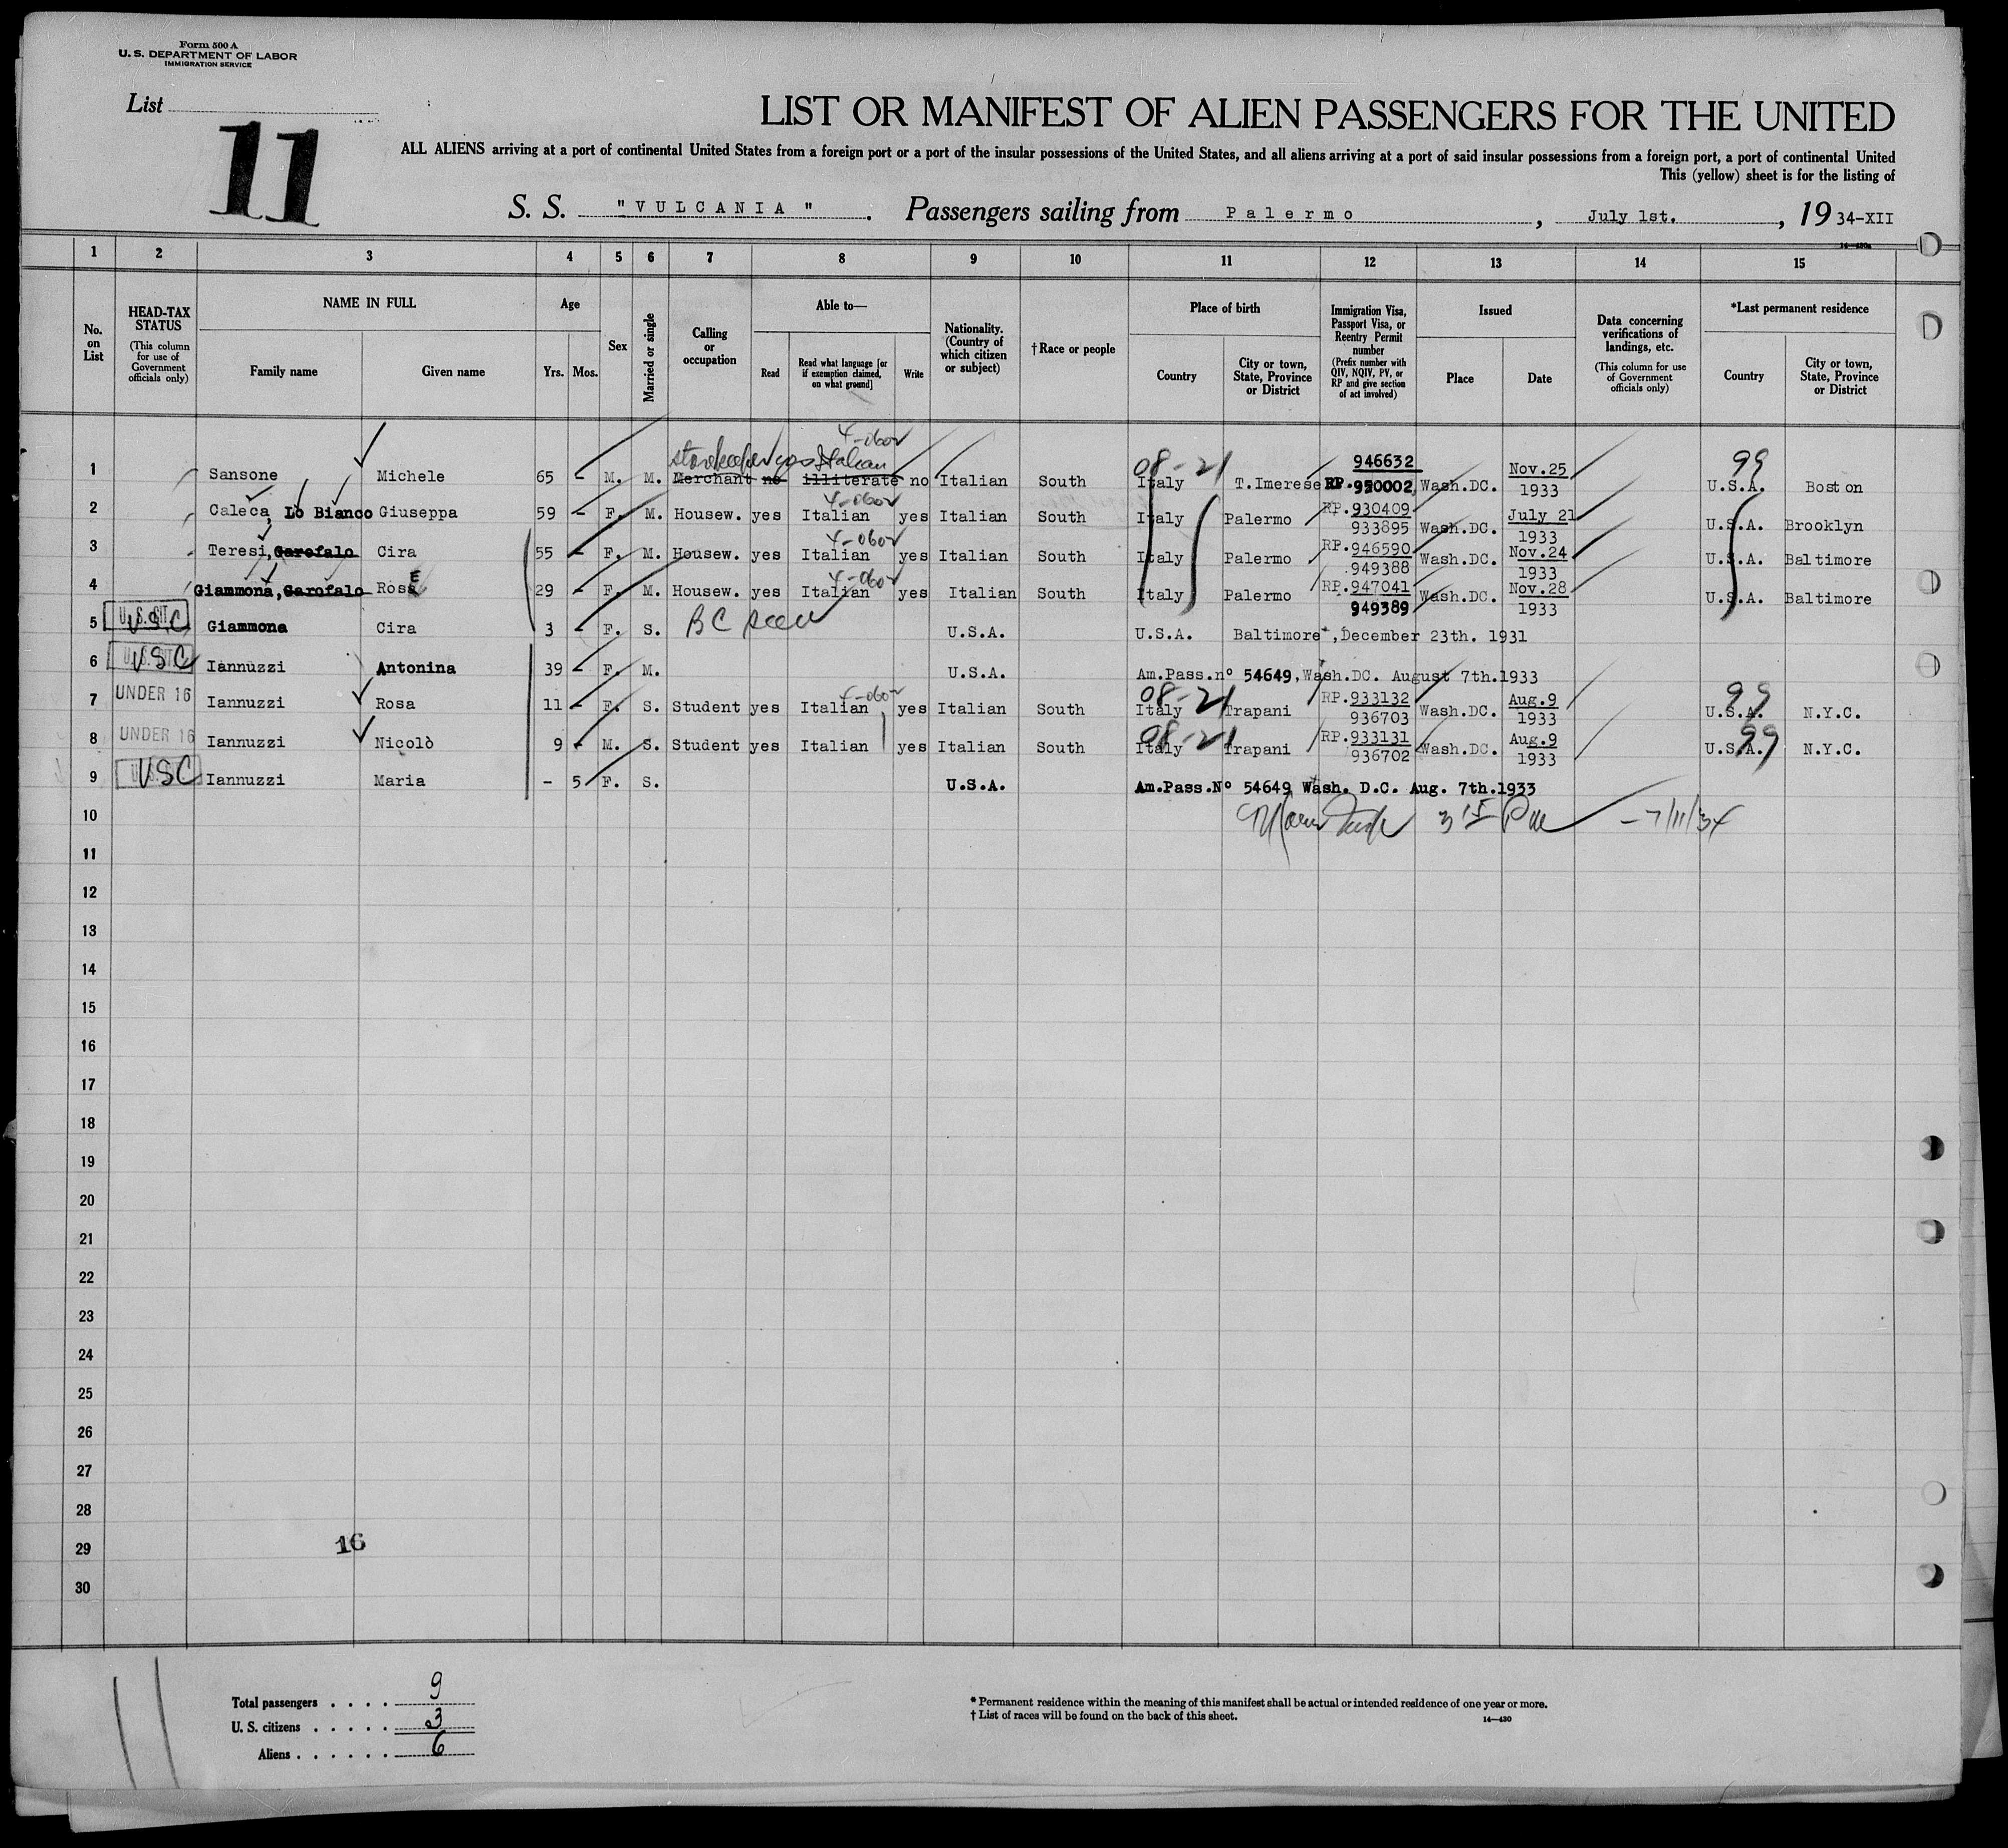 Form 500 A
U. S. DEPARTMENT OF LABOR
IMMIGRATION SERVICE
List
11
LIST OR MANIFEST OF ALIEN PASSENGERS FOR THE UNITED
ALL ALIENS arriving at a port of continental United States from a foreign port or a port of the insular possessions of the United States, and all aliens arriving at a port of said insular possessions from a foreign port, a port of continental United
This (yellow) sheet is for the listing of
S. S. "VULCANIA". Passengers sailing from Palermo, July 1st., 1934-XII
14—430a
1 2 3 4 5 6 7 8 9 10 11 12 13 14 15
No. on List
HEAD-TAX STATUS (This column for use of Government officials only)
NAME IN FULL
Family name Given name
Age
Yrs. Mos.
Sex
Married or single
Calling or occupation
Able to—
Read
Read what language [or if exemption claimed, on what ground]
Write
Nationality. (Country of which citizen or subject)
†Race or people
Place of birth
Country
City or town, State, Province or District
Immigration Visa, Passport Visa, or Reentry Permit number (Prefix number with QIV, NQIV, PV, or RP and give section of act involved)
Issued
Place Date
Data concerning verifications of landings, etc. (This column for use of Government officials only)
*Last permanent residence
Country
City or town, State, Province or District
storekeeper yes Italian 4-060v 08-21 99
1 Sansone Michele 65 - M. M. Merchant no illiterate no Italian South Italy T.Imerese 946632 RP.950002 Wash.DC. Nov.25 1933 U.S.A. Boston
2 Caleca, Lo Bianco Giuseppa 59 - F. M. Housew. yes Italian 4-060v yes Italian South Italy Palermo RP.930409 933895 Wash.DC. July 21 1933 U.S.A. Brooklyn
3 Teresi, Garofalo Cira 55 - F. M. Housew. yes Italian 4-060v yes Italian South Italy Palermo RP.946590 949388 Wash.DC. Nov.24 1933 U.S.A. Baltimore
4 Giammona, Garofalo Rose 29 - F. M. Housew. yes Italian 4-060v yes Italian South Italy Palermo RP.947041 949389 Wash.DC. Nov.28 1933 U.S.A. Baltimore
5 USC Giammona Cira 3 - F. S. BC seen U.S.A. U.S.A. Baltimore, December 23th. 1931
6 USC Iannuzzi Antonina 39 - F. M. U.S.A. Am.Pass.n° 54649, Wash.DC. August 7th.1933
7 UNDER 16 Iannuzzi Rosa 11 - F. S. Student yes Italian 4-060v yes Italian South 08-21 Italy Trapani RP.933132 936703 Wash.DC. Aug.9 1933 99 U.S.A. N.Y.C.
8 UNDER 16 Iannuzzi Nicolò 9 - M. S. Student yes Italian yes Italian South 08-21 Italy Trapani RP.933131 936702 Wash.DC. Aug.9 1933 99 U.S.A. N.Y.C.
9 USC Iannuzzi Maria - 5 F. S. U.S.A. Am.Pass.N° 54649 Wash. D.C. Aug. 7th.1933
10 7/11/34
11
12
13
14
15
16
17
18
19
20
21
22
23
24
25
26
27
28
29
30
16
Total passengers . . . . 9
U. S. citizens . . . . . 3
Aliens . . . . . . 6
* Permanent residence within the meaning of this manifest shall be actual or intended residence of one year or more.
† List of races will be found on the back of this sheet.
14—430